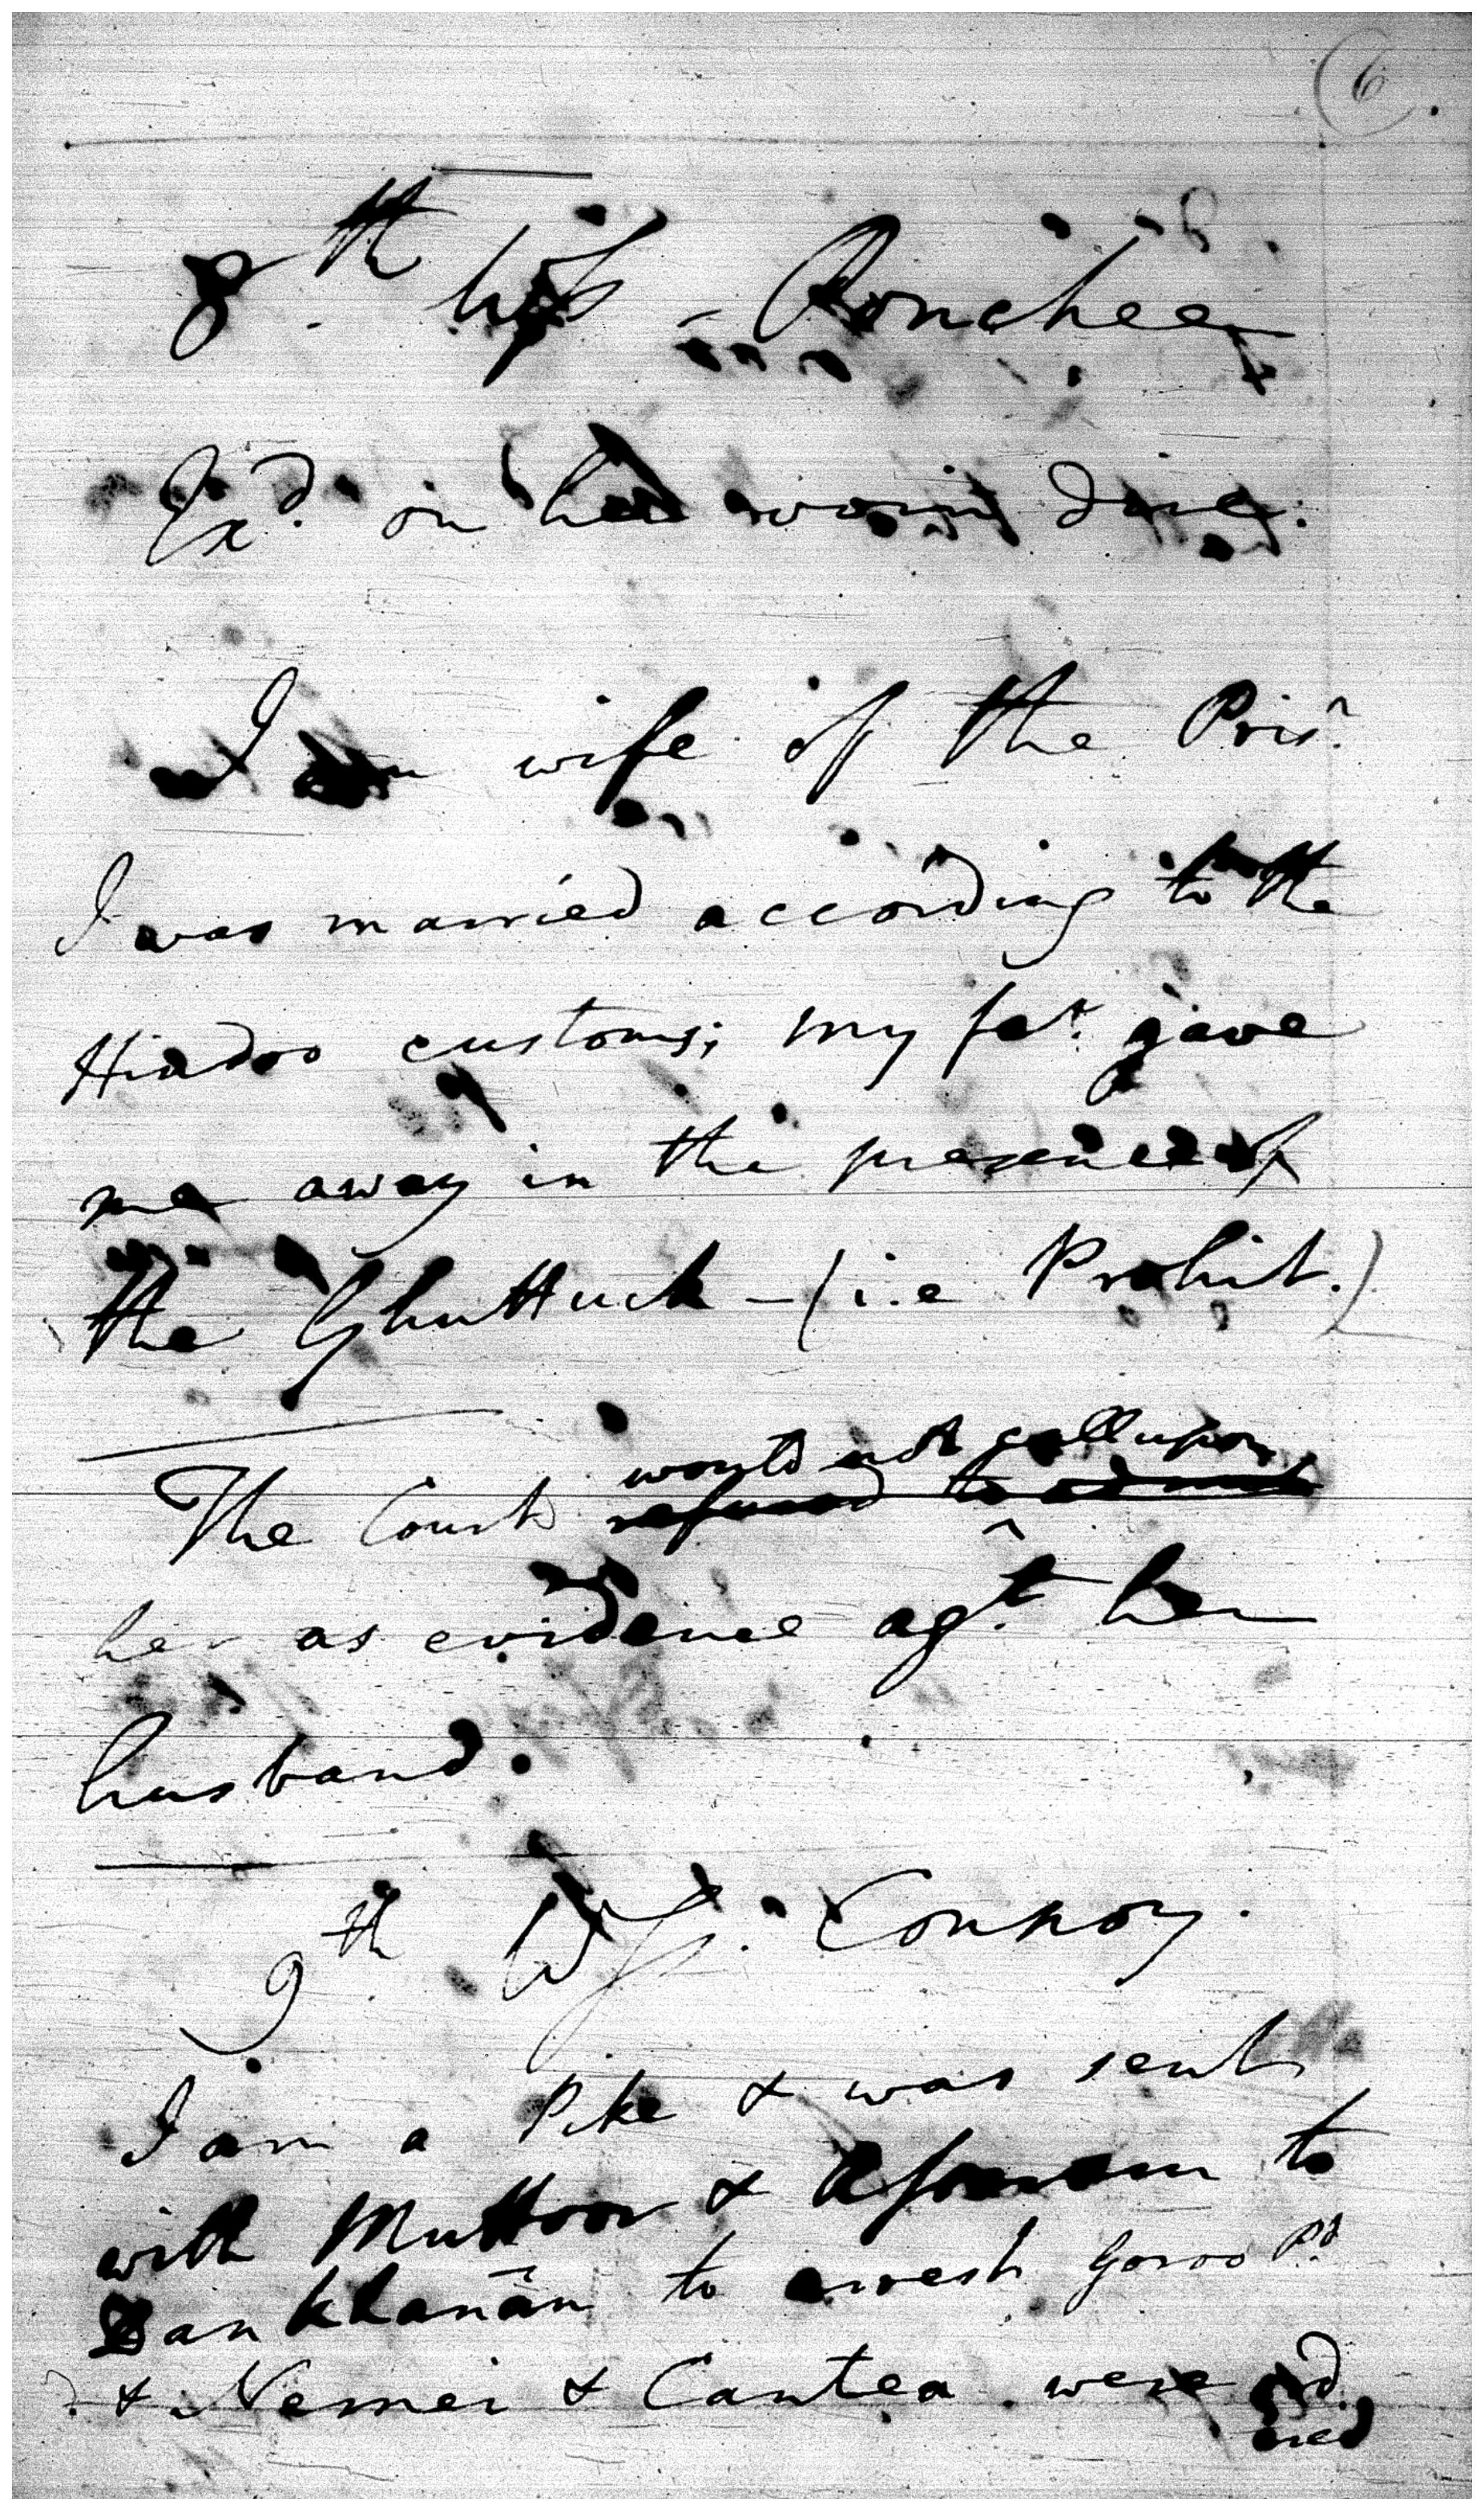 6
8th. Wits - Ronchee
Exd. on her voir dire.
I am wife of the Prisr.
I was married according to the
Hindoo customs; my fat. gave
me away in the presence of
the Ghuttuck - (i.e Prohit.)
The Court would not call upon
refused to admit
her as evidence agt. her
husband.
9th. Ws. Connoy.
I am a Pike & was sent
with Muttoor & to
Dankhanan to arrest Goroo Pd.
& Nemei & Cantea. were